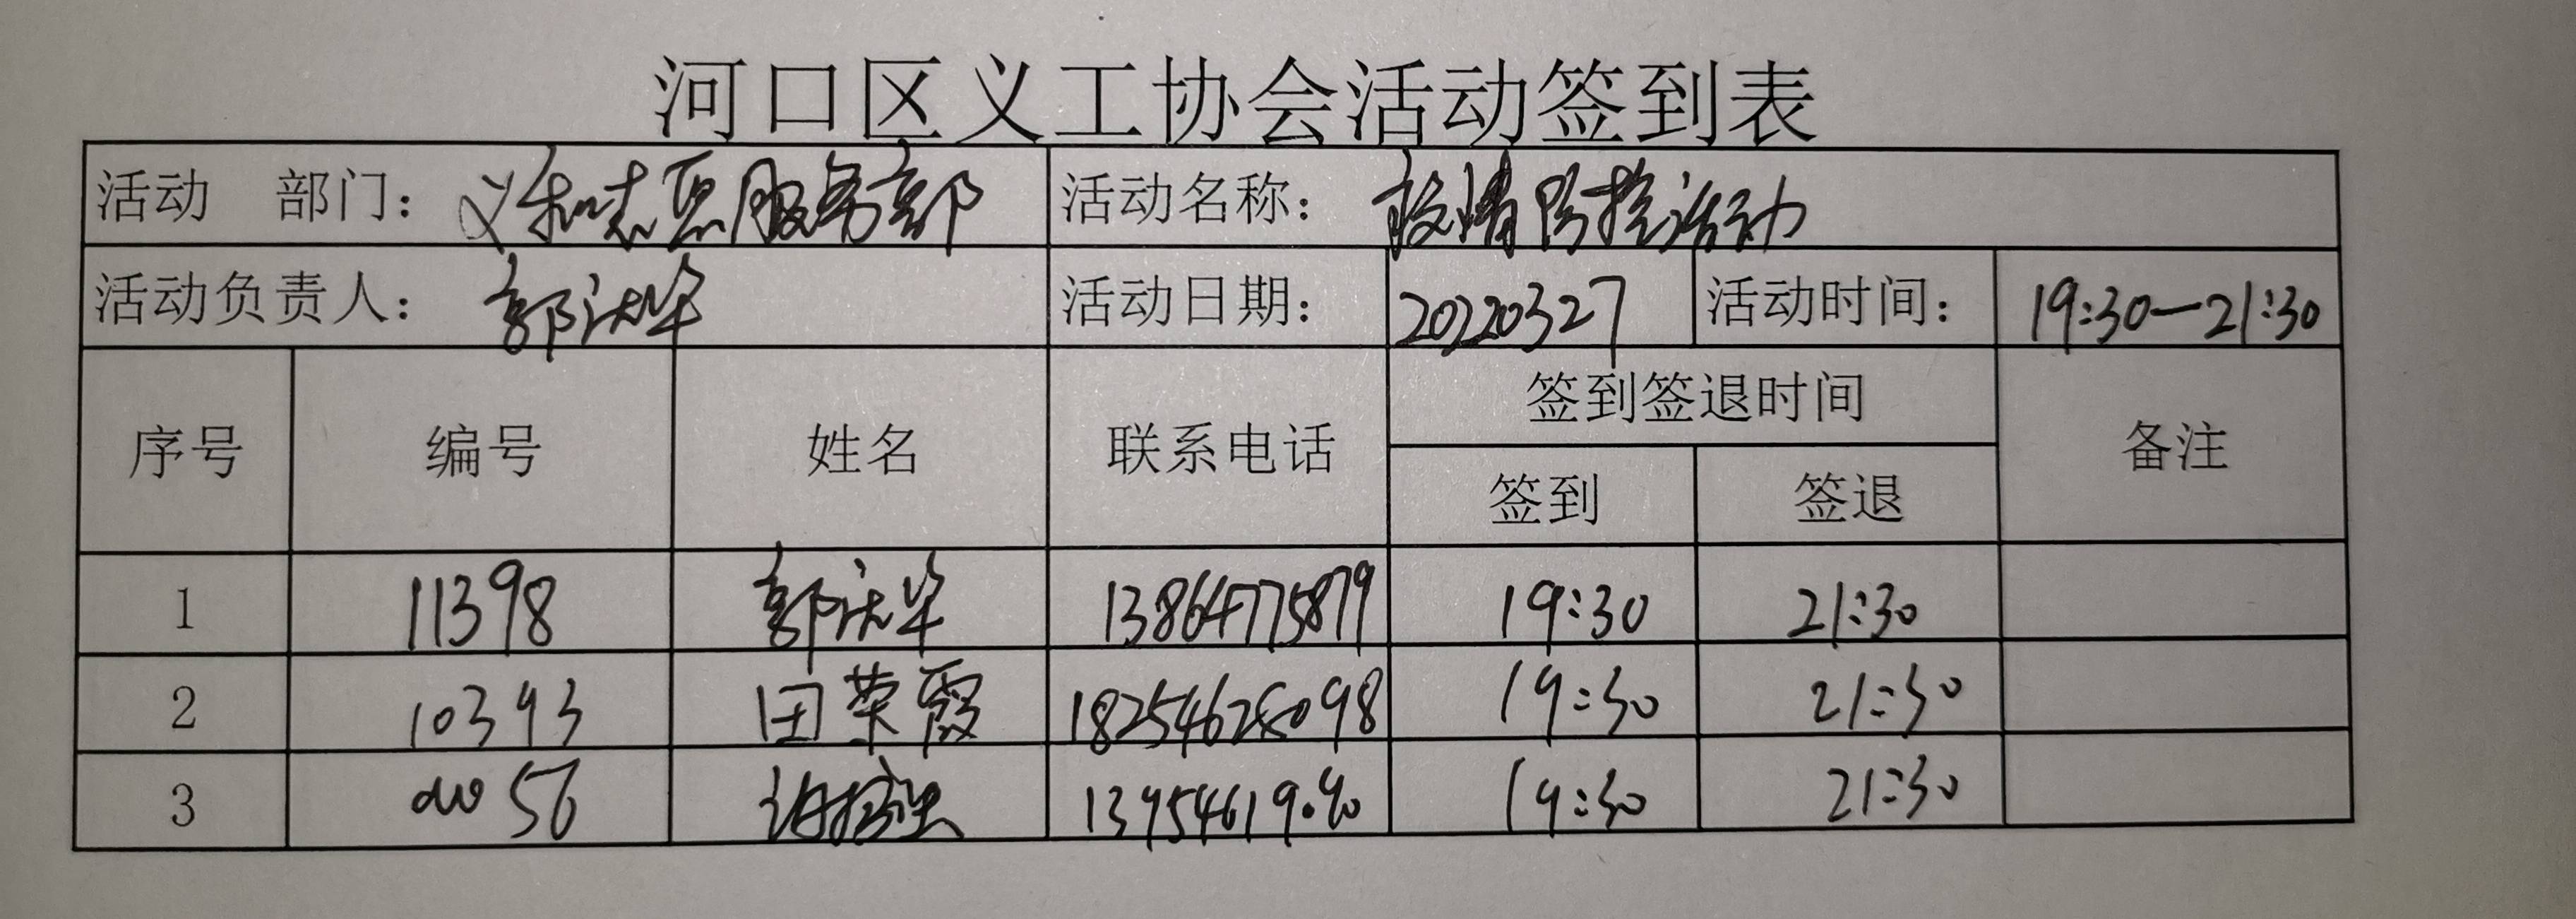 河口区义工协会活动签到表
活动 部门: 义和志愿服务部 活动名称: 疫情防控活动
活动负责人: 郭洪华 活动日期: 20220327 活动时间: 19:30—21:30
序号 编号 姓名 联系电话 签到签退时间 备注
签到 签退
1 11398 郭洪华 13864775879 19:30 21:30
2 10393 田荣霞 18254628098 19:30 21:30
3 19:30 21:30